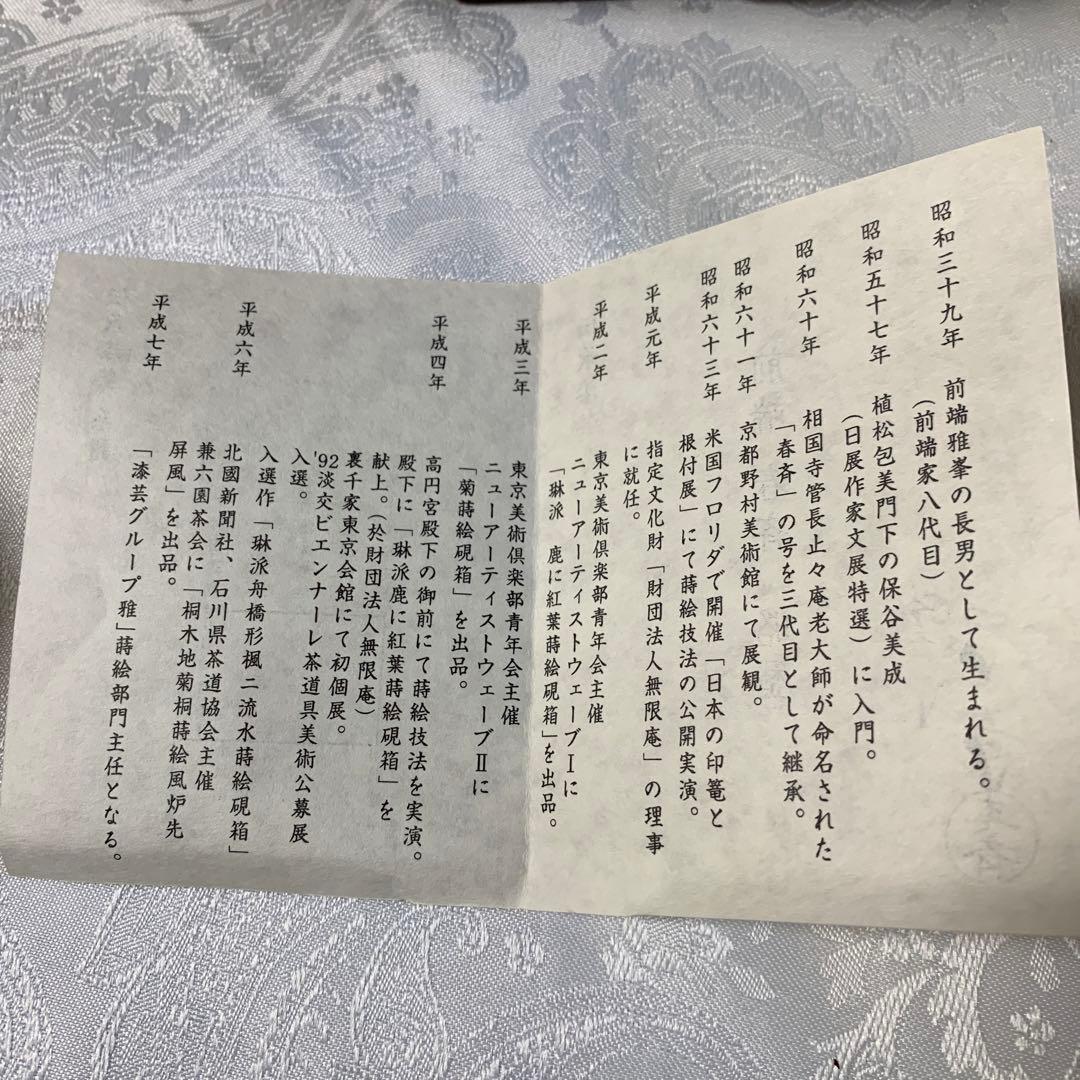 昭和三十九年 前端雅峯の長男として生まれる。
(前端家八代目)
昭和五十七年 植松包美門下の保谷美成
(日展作家文展特選)に入門。
昭和六十年 相国寺管長止々庵老大師が命名された
「春斉」の号を三代目として継承。
昭和六十一年 京都野村美術館にて展観。
昭和六十三年 米国フロリダで開催「日本の印篭と
根付展」にて蒔絵技法の公開実演。
平成元年 指定文化財「財団法人無限庵」の理事
に就任。
平成二年 東京美術倶楽部青年会主催
ニューアーティストウェーブⅠに
「琳派 鹿に紅葉蒔絵硯箱」を出品。
平成三年 東京美術倶楽部青年会主催
ニューアーティストウェーブⅡに
「菊蒔絵硯箱」を出品。
平成四年 高円宮殿下の御前にて蒔絵技法を実演。
殿下に「琳派鹿に紅葉蒔絵硯箱」を
献上。(於財団法人無限庵)
裏千家東京会館にて初個展。
'92淡交ビエンナーレ茶道具美術公募展
入選。
入選作「琳派舟橋形楓ニ流水蒔絵硯箱」
平成六年 北國新聞社、石川県茶道協会主催
兼六園茶会に「桐木地菊桐蒔絵風炉先
屏風」を出品。
平成七年 「漆芸グループ雅」蒔絵部門主任となる。